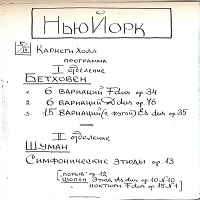 НЬЮ ЙОРК
5/IV Карнеги Холл
программа
I отделение
БЕТХОВЕН
1. 6 ВАРИАЦИЙ F dur op. 34
2. 6 ВАРИАЦИЙ D dur op. 76
3. 15 ВАРИАЦИЙ (с фугой) Es dur op 35
II отделение
ШУМАН
Симфонические этюды op. 13
"порыв" op. 12
Шопен Этюд dis dur op. 10 N 10
ноктюрн F dur op. 15 N 1